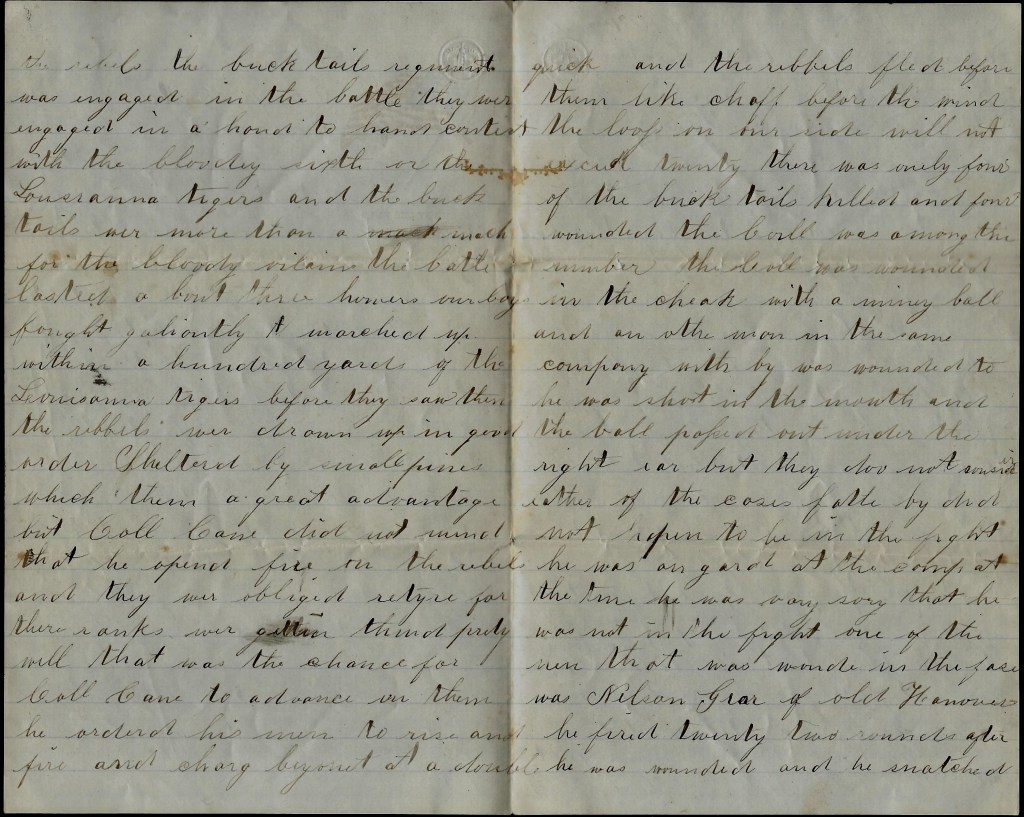 the rebels the buck tails regiment
was engaged in the battle they wer
engaged in a hand to hand contest
with the bloodey sixth or the
Lousianna tigers and the buck
tails wer more than a mach
for the bloody vilains the battle
lasted a bout three howers our boys
fought galiantly & marched up
within a hundred yards of the
Louisanna tigers before they saw them
the rebbels wer drawn up in good
order Shelterd by small pines
which them a great advantage
but Coll Cane did not mind
that he opend fire on the rebels
and they wer obliged retyre for
there ranks wer gettin thind prety
will that was the chance for
Coll Cane to advance on them
he orderd his men to rise and
fire and charg beyonet at a doubl
quick and the rebbels fled before
them like chaff before the wind
the loss on our side will not
exced twenty there was onely four
of the buck tails killed and four
wounded the Coll was among the
number the Coll was wounded
in the cheak with a miney ball
and an othe man in the same
company with by was wounded to
he was shot in the mouth and
the ball passed out under the
right ear but they doo not consider
eather of the cases fatle by did
not hapen to be in the fight
he was on gard at the camp at
the time he was vary sory that he
was not in the fight one of the
men that was wonde in the face
was Nilson Grar of old Hanover
he fired twenty two rounds after
he was wounded and he snatched